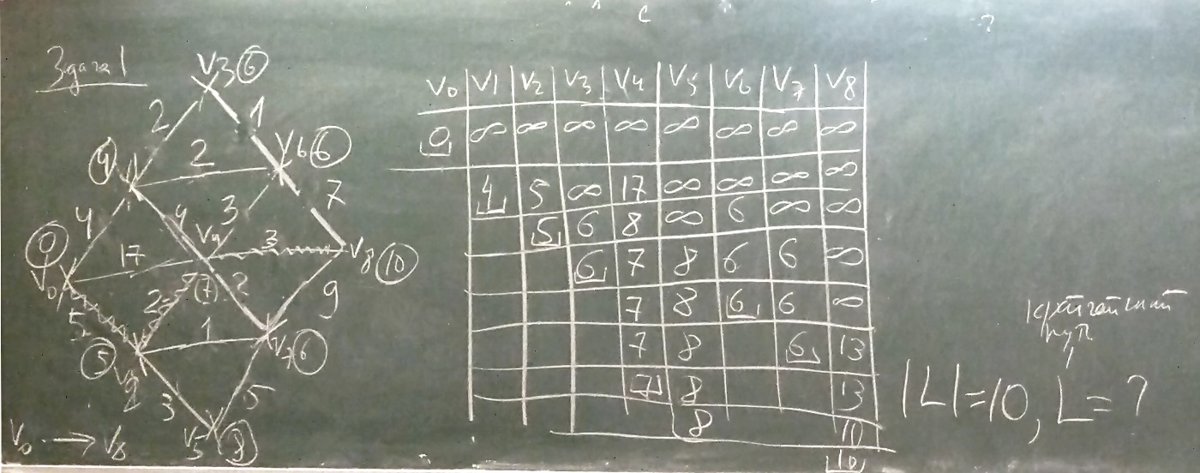 Задача 1
V3 6
2
1
4
2
V6 6
4
4
3
7
0
17
V4
3
V8 10
V0
2
7
2
9
5
1
5
V7 6
V2
3
5
V5 8
V0 → V8
V0 V1 V2 V3 V4 V5 V6 V7 V8
0 ∞ ∞ ∞ ∞ ∞ ∞ ∞ ∞
4 5 ∞ 17 ∞ ∞ ∞ ∞
5 6 8 ∞ 6 ∞ ∞
6 7 8 6 6 ∞
7 8 6 6 ∞
7 8 6 13
7 8 13
8 10
10
кратчайший
путь
|L|=10, L=?